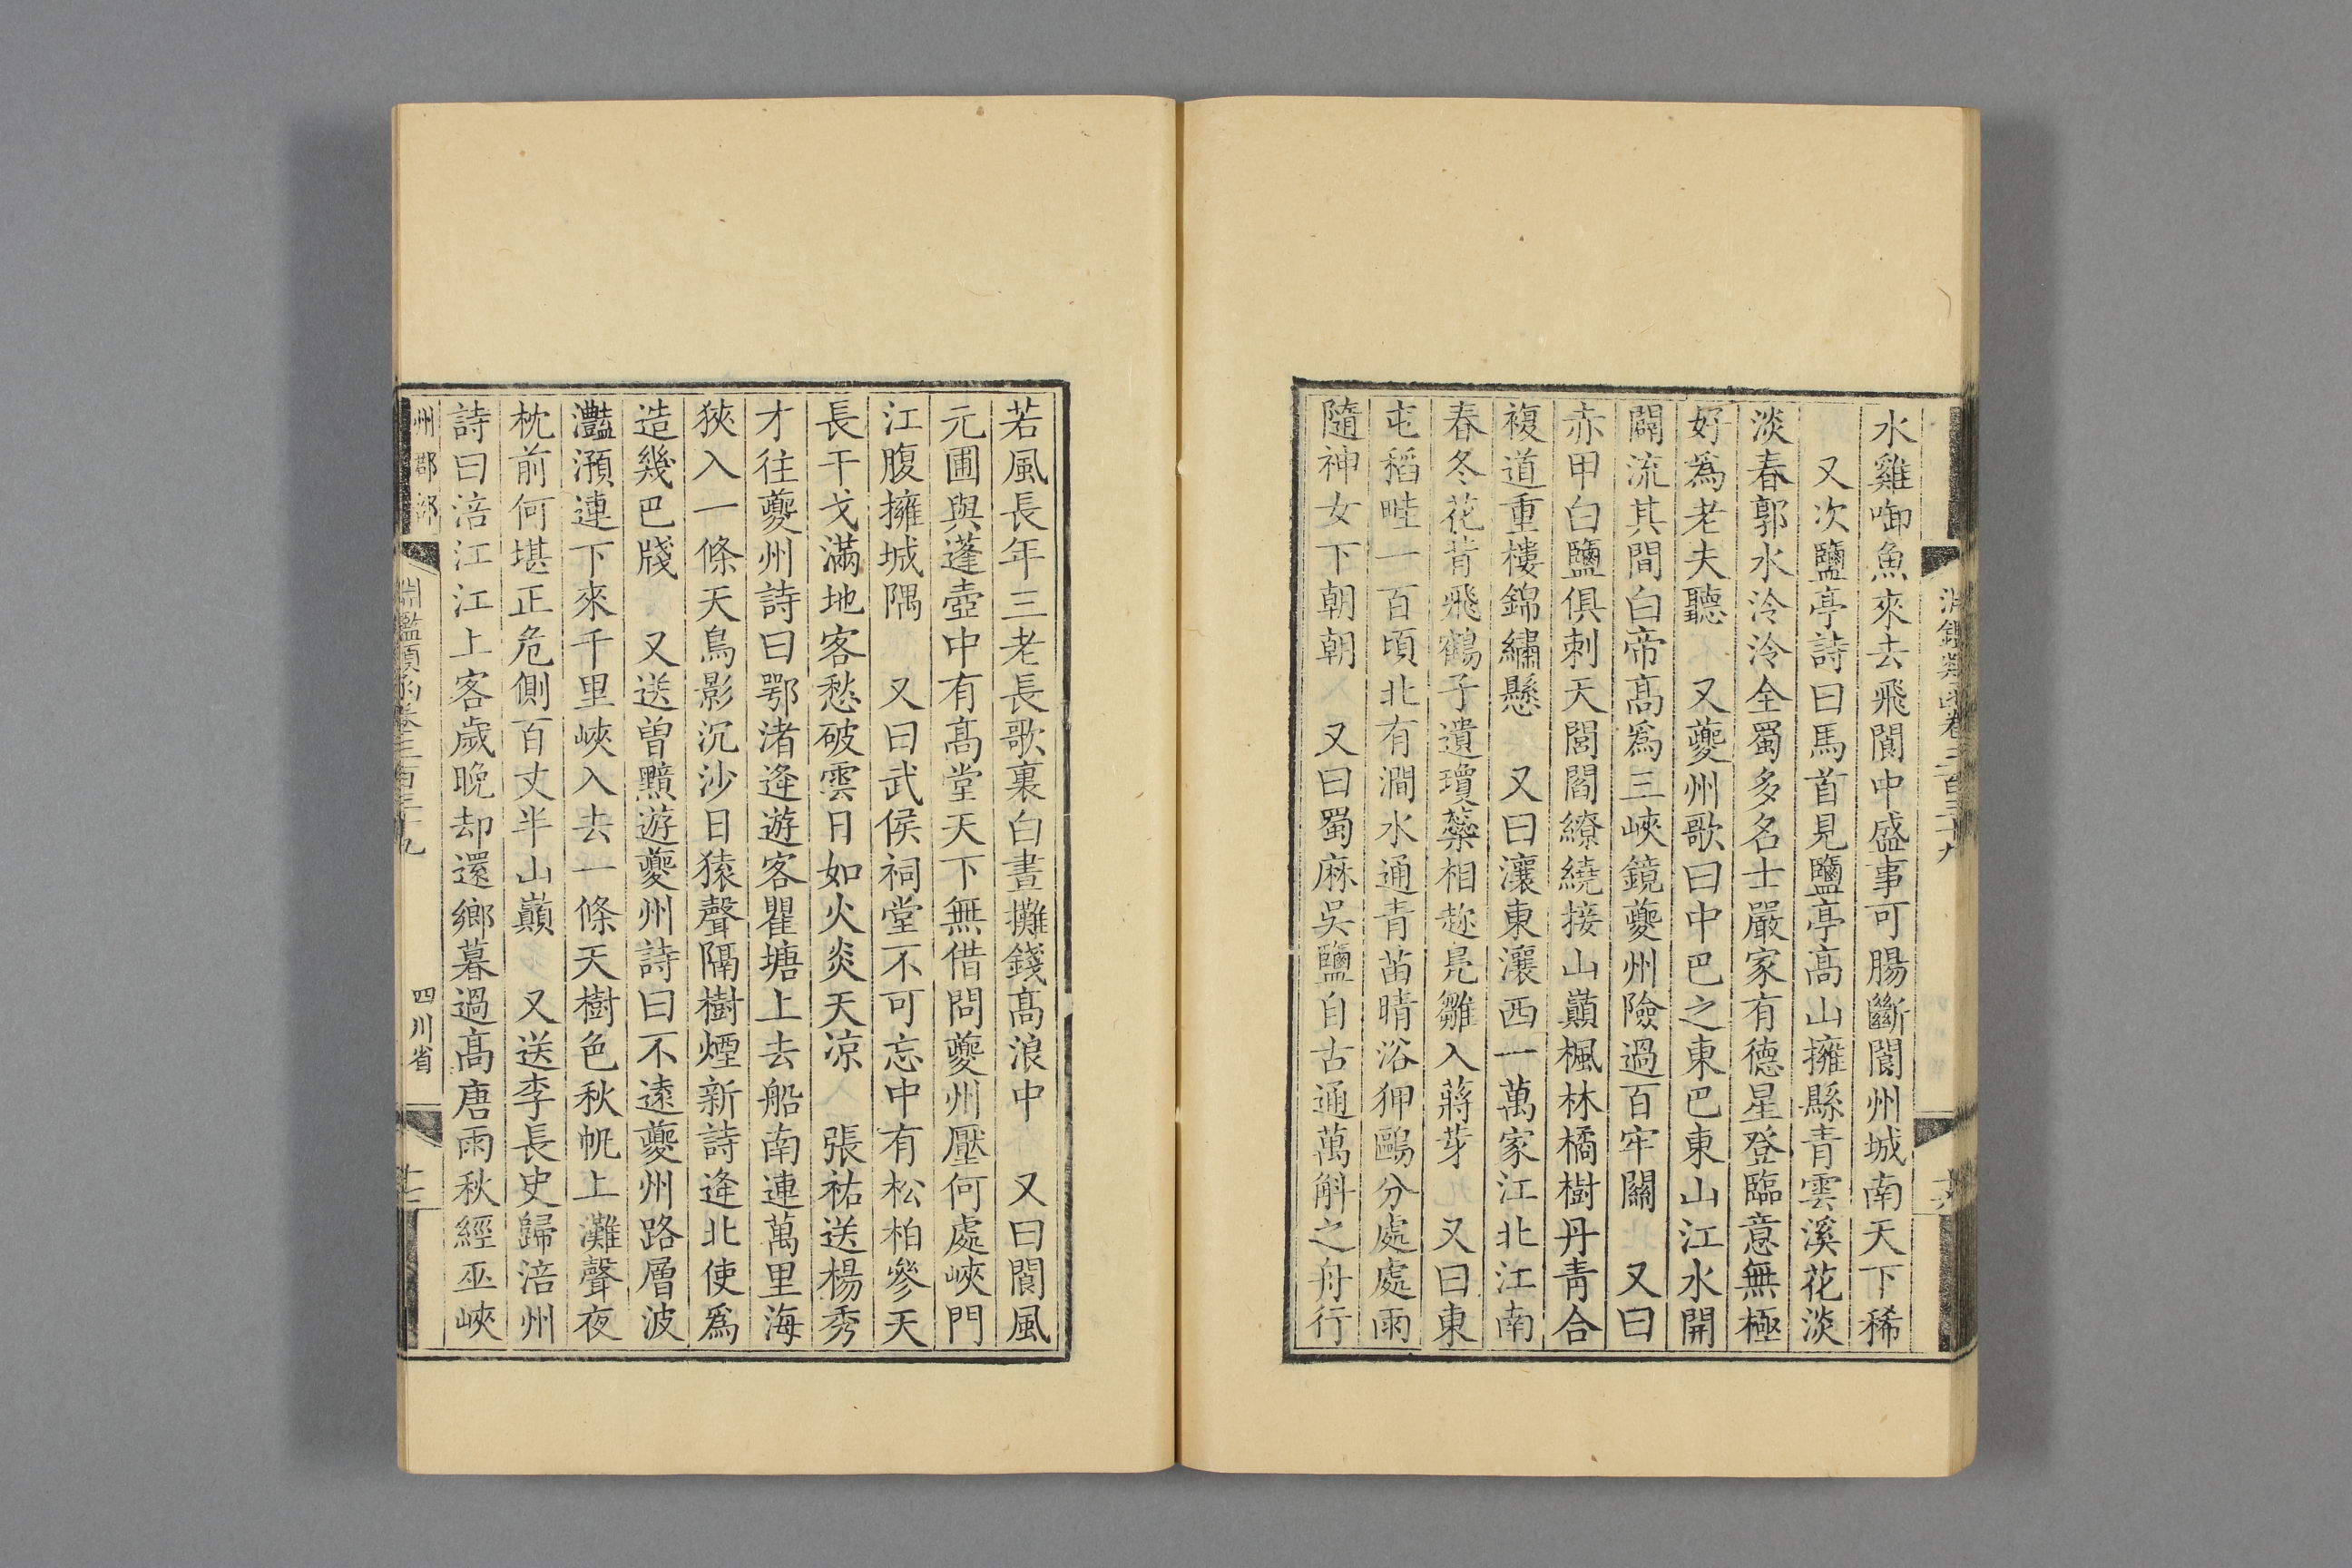 水雞啣魚來去飛閬中盛事可腸斷閬州城南天下稀
又次鹽亭詩曰馬首見鹽亭高山擁縣青雲溪花淡
淡春郭水泠泠全蜀多名士嚴家有德星登臨意無極
好爲老夫聽 又夔州歌曰中巴之東巴東山江水開
闢流其間白帝高爲三峽鏡夔州險過百牢關 又曰
赤甲白鹽俱刺天閭閻繚繞接山巔楓林橘樹丹青合
複道重樓錦繡懸 又曰瀼東瀼西一萬家江北江南
春冬花背飛鶴子遺瓊蘂相趂鳧雛入蔣芽 又曰東
屯稻畦一百頃北有澗水通青苗晴浴狎鷗分處處雨
隨神女下朝朝 又曰蜀麻吳鹽自古通萬斛之舟行
若風長年三老長歌裏白晝攤錢高浪中 又曰閬風
元圃與蓬壺中有高堂天下無借問夔州壓何處峽門
江腹擁城隅 又曰武侯祠堂不可忘中有松柏參天
長干戈滿地客愁破雲日如火炎天凉 張祐送楊秀
才往夔州詩曰鄂渚逢遊客瞿塘上去船南連萬里海
狹入一條天鳥影沉沙日猿聲隔樹煙新詩逢北使爲
造幾巴牋 又送曾黯遊夔州詩曰不遠夔州路層波
灩澦連下來千里峽入去一條天樹色秋帆上灘聲夜
枕前何堪正危側百丈半山巔 又送李長史歸涪州
詩曰涪江江上客歲晚却還鄉暮過高唐雨秋經巫峽
州郡部 淵鑑類函卷三百三十九 四川省